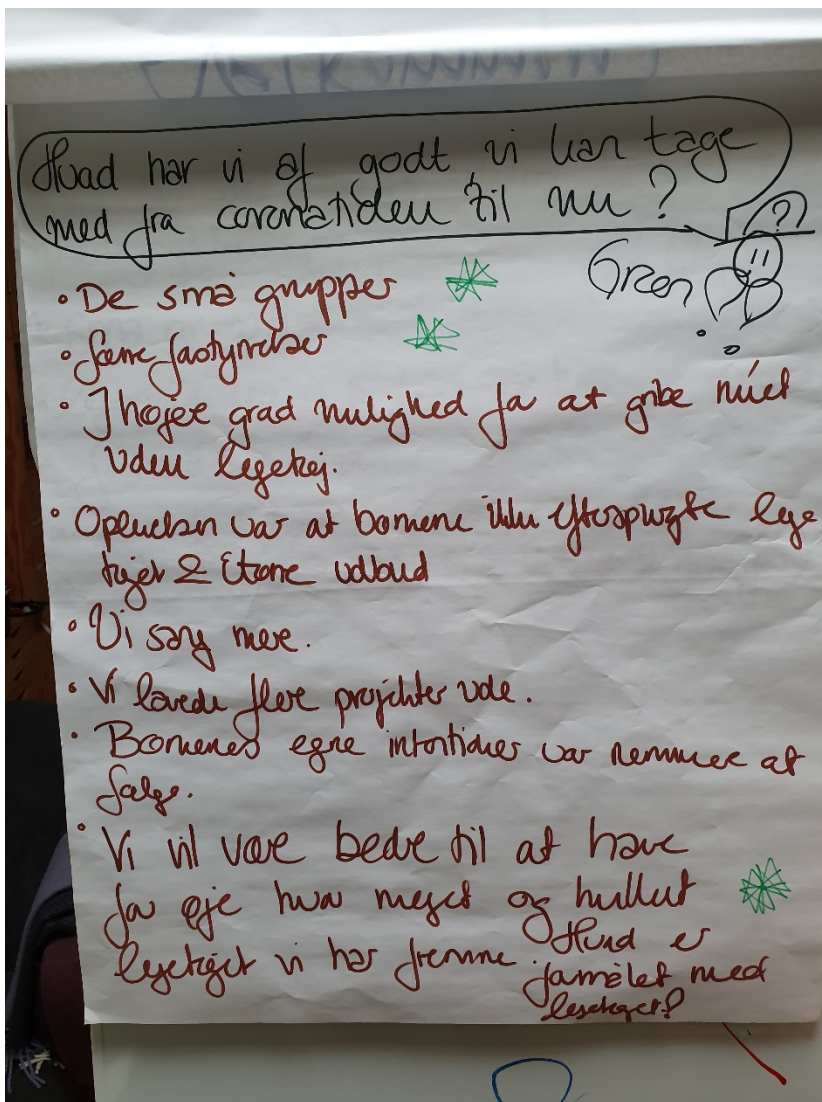 Hvad har vi af godt vi kan tage
med fra coronatiden til nu?
?
Grøn
• De små grupper
• Færre fastyrrelser
• I højere grad mulighed for at gribe nuet
uden legetøj.
• Oplevelsen var at børnene ikke efterspurgte lege
tøjet & større udbud
• Vi sang mere.
• Vi lavede flere projekter ude.
• Børnenes egne intentioner var nemmere at
følge.
• Vi vil være bedre til at have
for øje hvor meget og hvilket
legetøjet vi har fremme. Hvad er
formålet med
legetøjet?